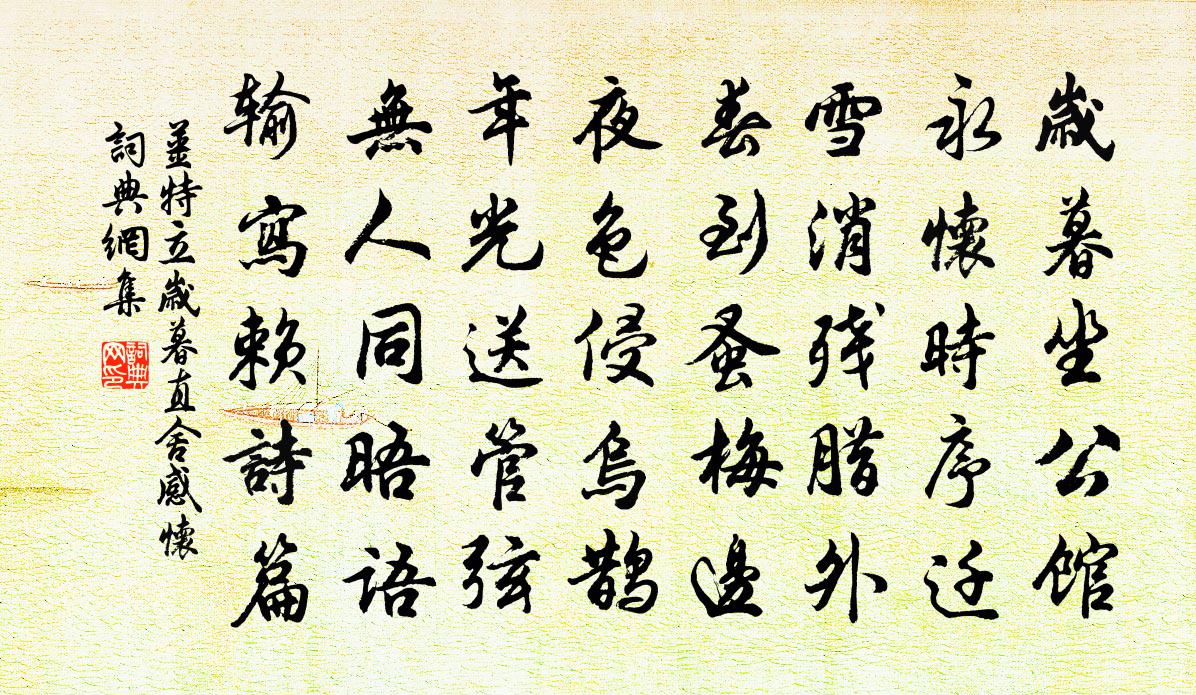 歲暮坐公館
永懷時序迁
雪消残腊外
春到蚤梅邊
夜色侵烏鵲
年光送管弦
無人同晤語
输寫賴詩篇
薑特立歲暮直舍感懷
詞典網集
詞典网印